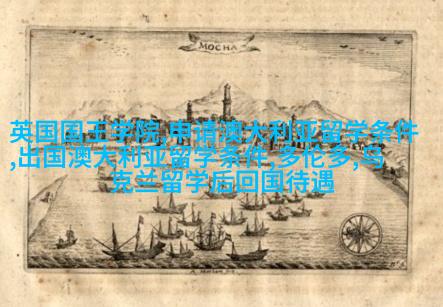 MOCHA
英国国王学院,申请澳大利亚留学条件
,出国澳大利亚留学条件,多伦多,乌
克兰留学后回国待遇